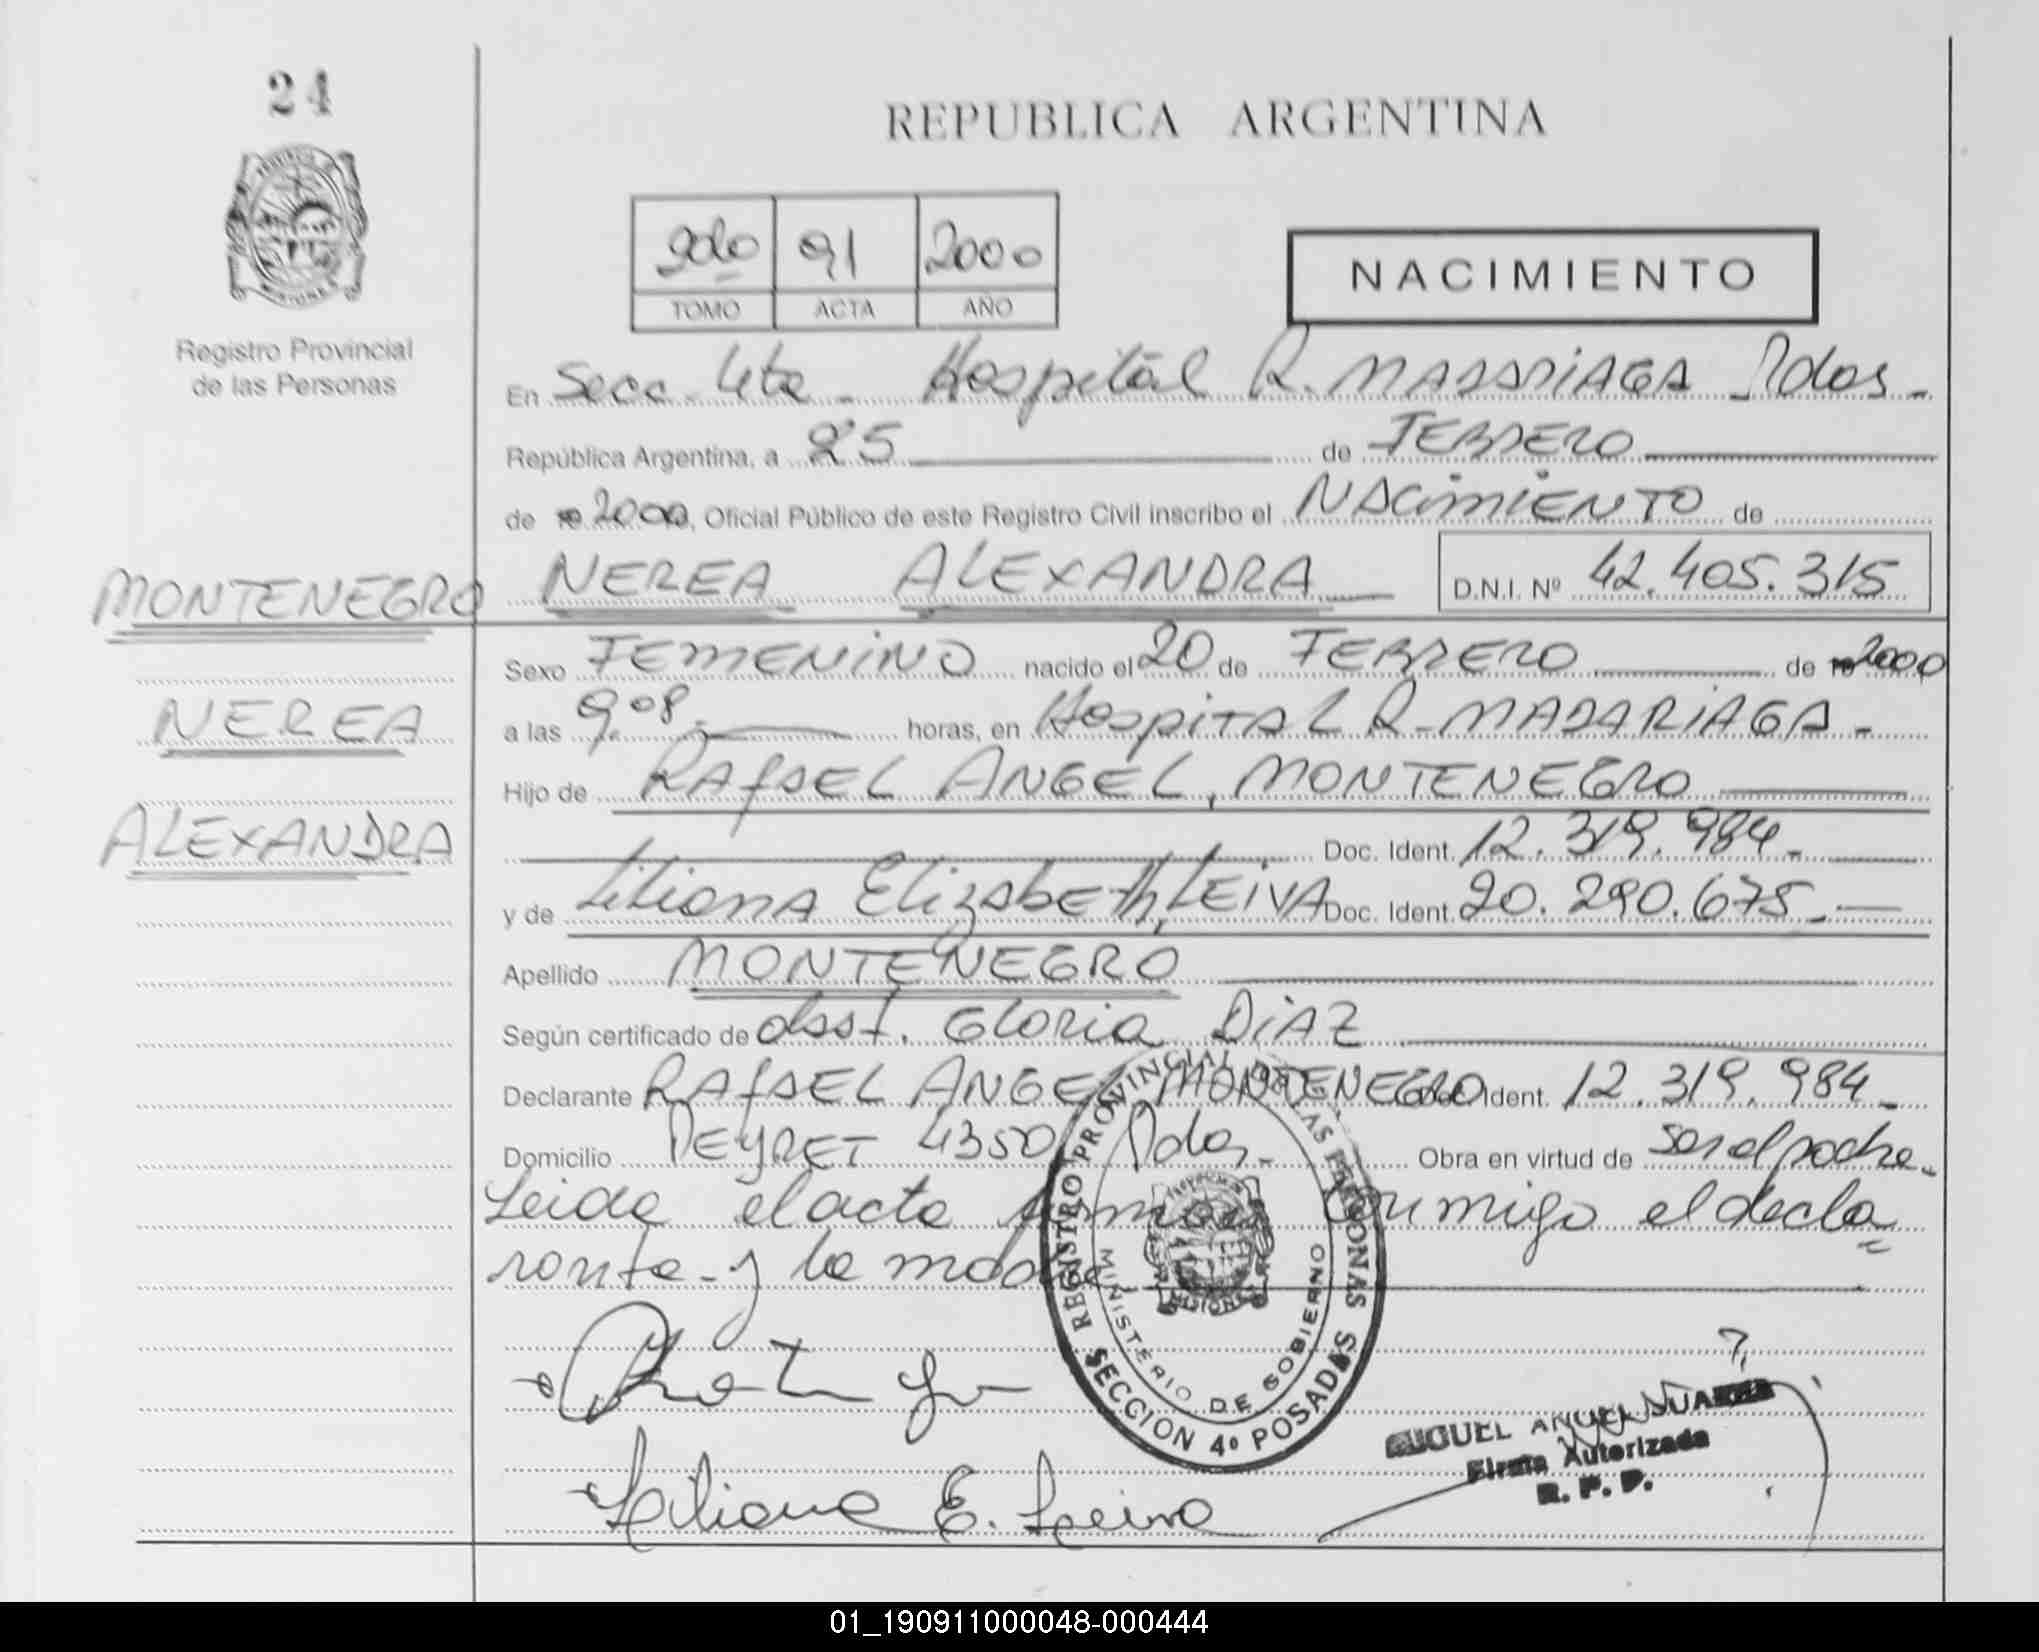 24
REPUBLICA ARGENTINA
2do 91 2000
TOMO ACTA AÑO
NACIMIENTO
Registro Provincial
de las Personas
En Secc. 4ta - Hospital R. MADARIAGA Pdas -
República Argentina, a 25 de FEBRERO
de 2000, Oficial Público de este Registro Civil inscribo el NACIMIENTO de
MONTENEGRO NEREA ALEXANDRA D.N.I. Nº 42.405.315
Sexo FEMENINO nacido el 20 de FEBRERO de 2000
NEREA
a las 9,08 horas, en Hospital R. MADARIAGA -
Hijo de RAFAEL ANGEL, MONTENEGRO
ALEXANDRA
Doc. Ident. 12.319.984 -
y de Liliana Elizabeth, LEIVA Doc. Ident. 20.290.675 -
Apellido MONTENEGRO
Según certificado de obst. Gloria DIAZ
Declarante RAFAEL ANGEL MONTENEGRO Ident. 12.319.984 -
Domicilio PEYRET 4350 Pdas - Obra en virtud de ser el padre -
Leida el acta firman conmigo el decla
rante y la madre
REGISTRO PROVINCIAL DE LAS PERSONAS
MINISTERIO DE GOBIERNO
SECCION 4º POSADAS
MISIONES
Liliana E. Leiva
MIGUEL ANGEL SUAREZ
Firma Autorizada
R. P. P.
01_190911000048-000444